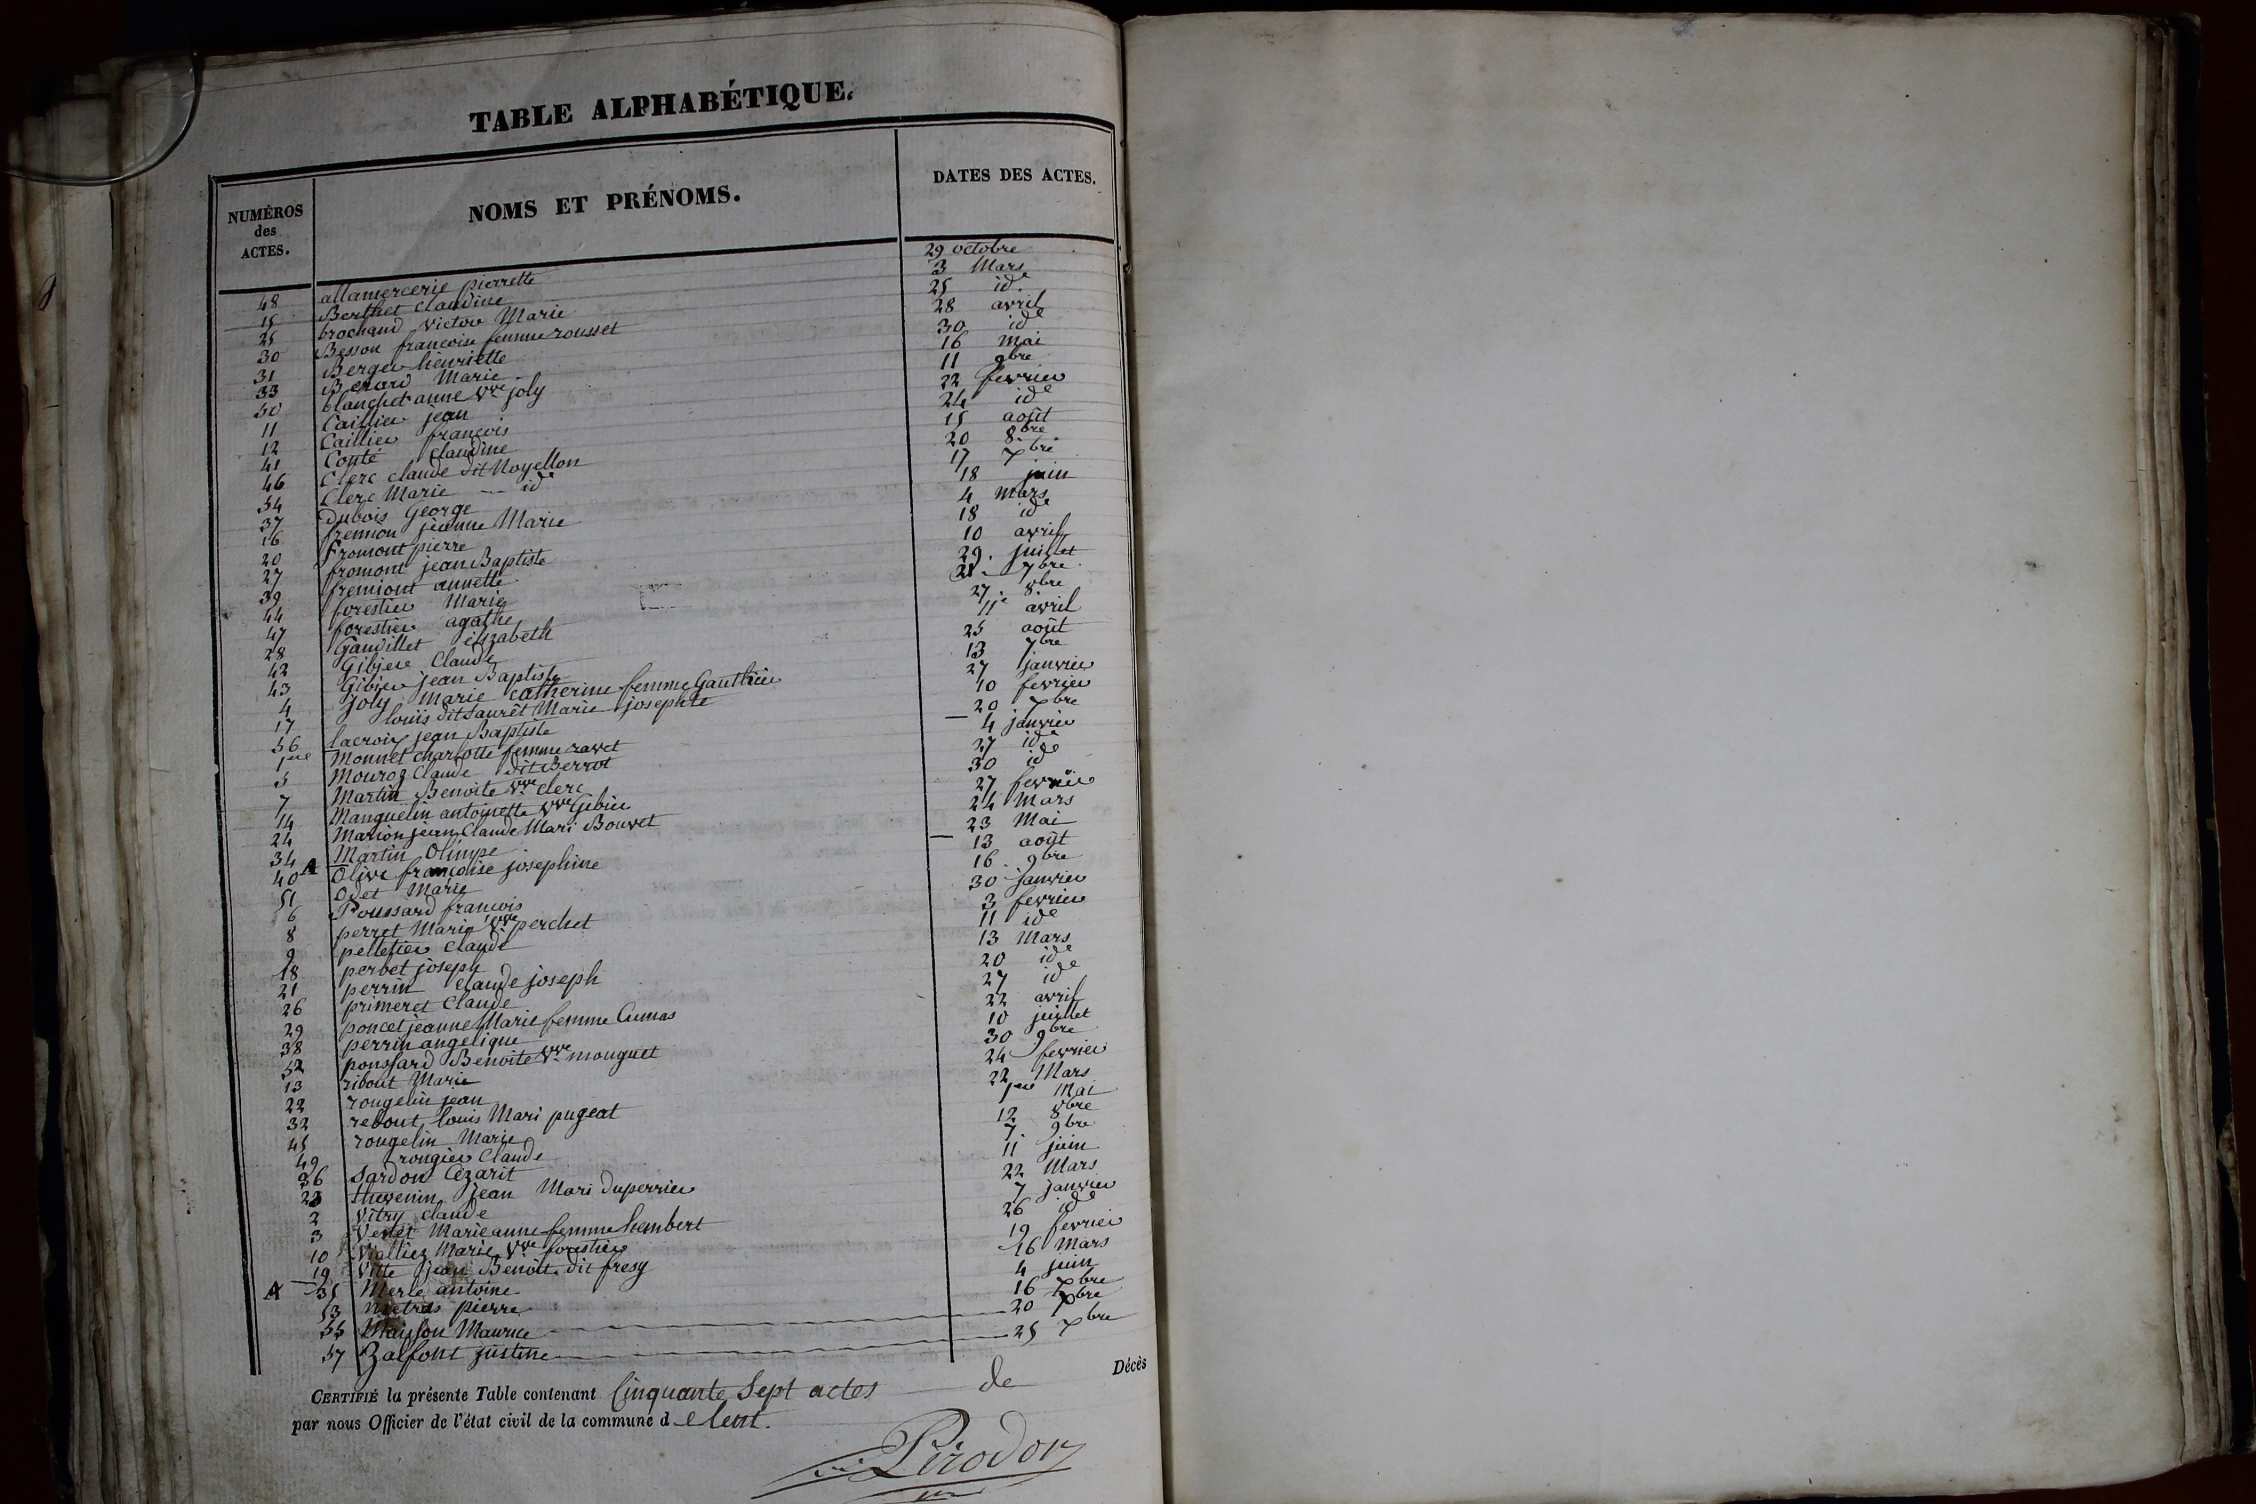 TABLE ALPHABÉTIQUE.
NUMÉROS des ACTES. NOMS ET PRÉNOMS. DATES DES ACTES.
48 allamercerie pierrette 29 octobre
15 Berthet Claudine 3 Mars
25 brochand victor Marie 25 id.
30 Besson francoise femme rousset 28 avril
31 Berger henriette 30 id
33 Benard Marie 16 Mai
50 blanchet anne vve joly 11 9bre
11 Caillier jean 22 fevrier
12 Caillier francois 24 id
41 Conté Claudine 15 août
46 Clerc claude dit Noyellon 20 8bre
54 Clerc Marie — id 17 xbre
37 Dubois George 18 juin
16 fremion jeanne Marie 4 Mars
20 fromont pierre 18 id
27 fromont jean Baptiste 10 avril
39 fremiont annette 29 juillet
44 forestier Marie 21 7bre
47 forestier agathe 27 8bre
28 Gaudillet élizabeth 11 avril
42 Gibier Claude 25 août
43 Gibier jean Baptiste 13 7bre
4 Joly Marie Catherine femme Gauthier 27 janvier
17 louis dit Sauret Marie josephte 10 fevrier
56 lacroix jean Baptiste 20 xbre
1er Monnet charlotte femme ravet 4 janvier
5 Mouroz Claude dit Berrot 27 id
7 Martin Benoite vve clerc 30 id
14 Manguelin antoinette vve Gibier 27 fevrier
24 Marion jean Claude Mari Bouvet 24 Mars
34 Martin Olimpe 23 Mai
40 A Olive francoise josephine 13 août
51 Odet Marie 16 9bre
6 Poussard francois 30 janvier
8 perret Marie vve perchet 3 fevrier
9 pelletier Claude 11 id
18 perbet joseph 13 Mars
21 perrin Claude joseph 20 id
26 primeret Claude 27 id
29 poncet jeanne Marie femme Cumas 22 avril
38 perrin angelique 10 juillet
52 poussard Benoite vve mouguet 30 9bre
13 ribout Marie 24 fevrier
22 rougelin jean 22 Mars
32 rebout louis Mari pugeat 1er Mai
45 rougelin Marie 12 8bre
49 rougier Claude 7 9bre
36 Sardon Cézarit 11 juin
23 thevenin jean Mari duperrier 22 Mars
2 Vitry claude 7 janvier
3 Verlet Marieanne femme humbert 26 id
10 Vialliez Marie vve forestier 19 fevrier
19 Vitte jean Benoit dit fresy 16 Mars
A 35 Merle antoine 4 juin
53 metras pierre 16 xbre
55 Mayson Maurice 20 xbre
57 Zalfont Justine 25 xbre
CERTIFIÉ la présente Table contenant Cinquante Sept actes de Décès
par nous Officier de l'état civil de la commune d e lent.
Perodon